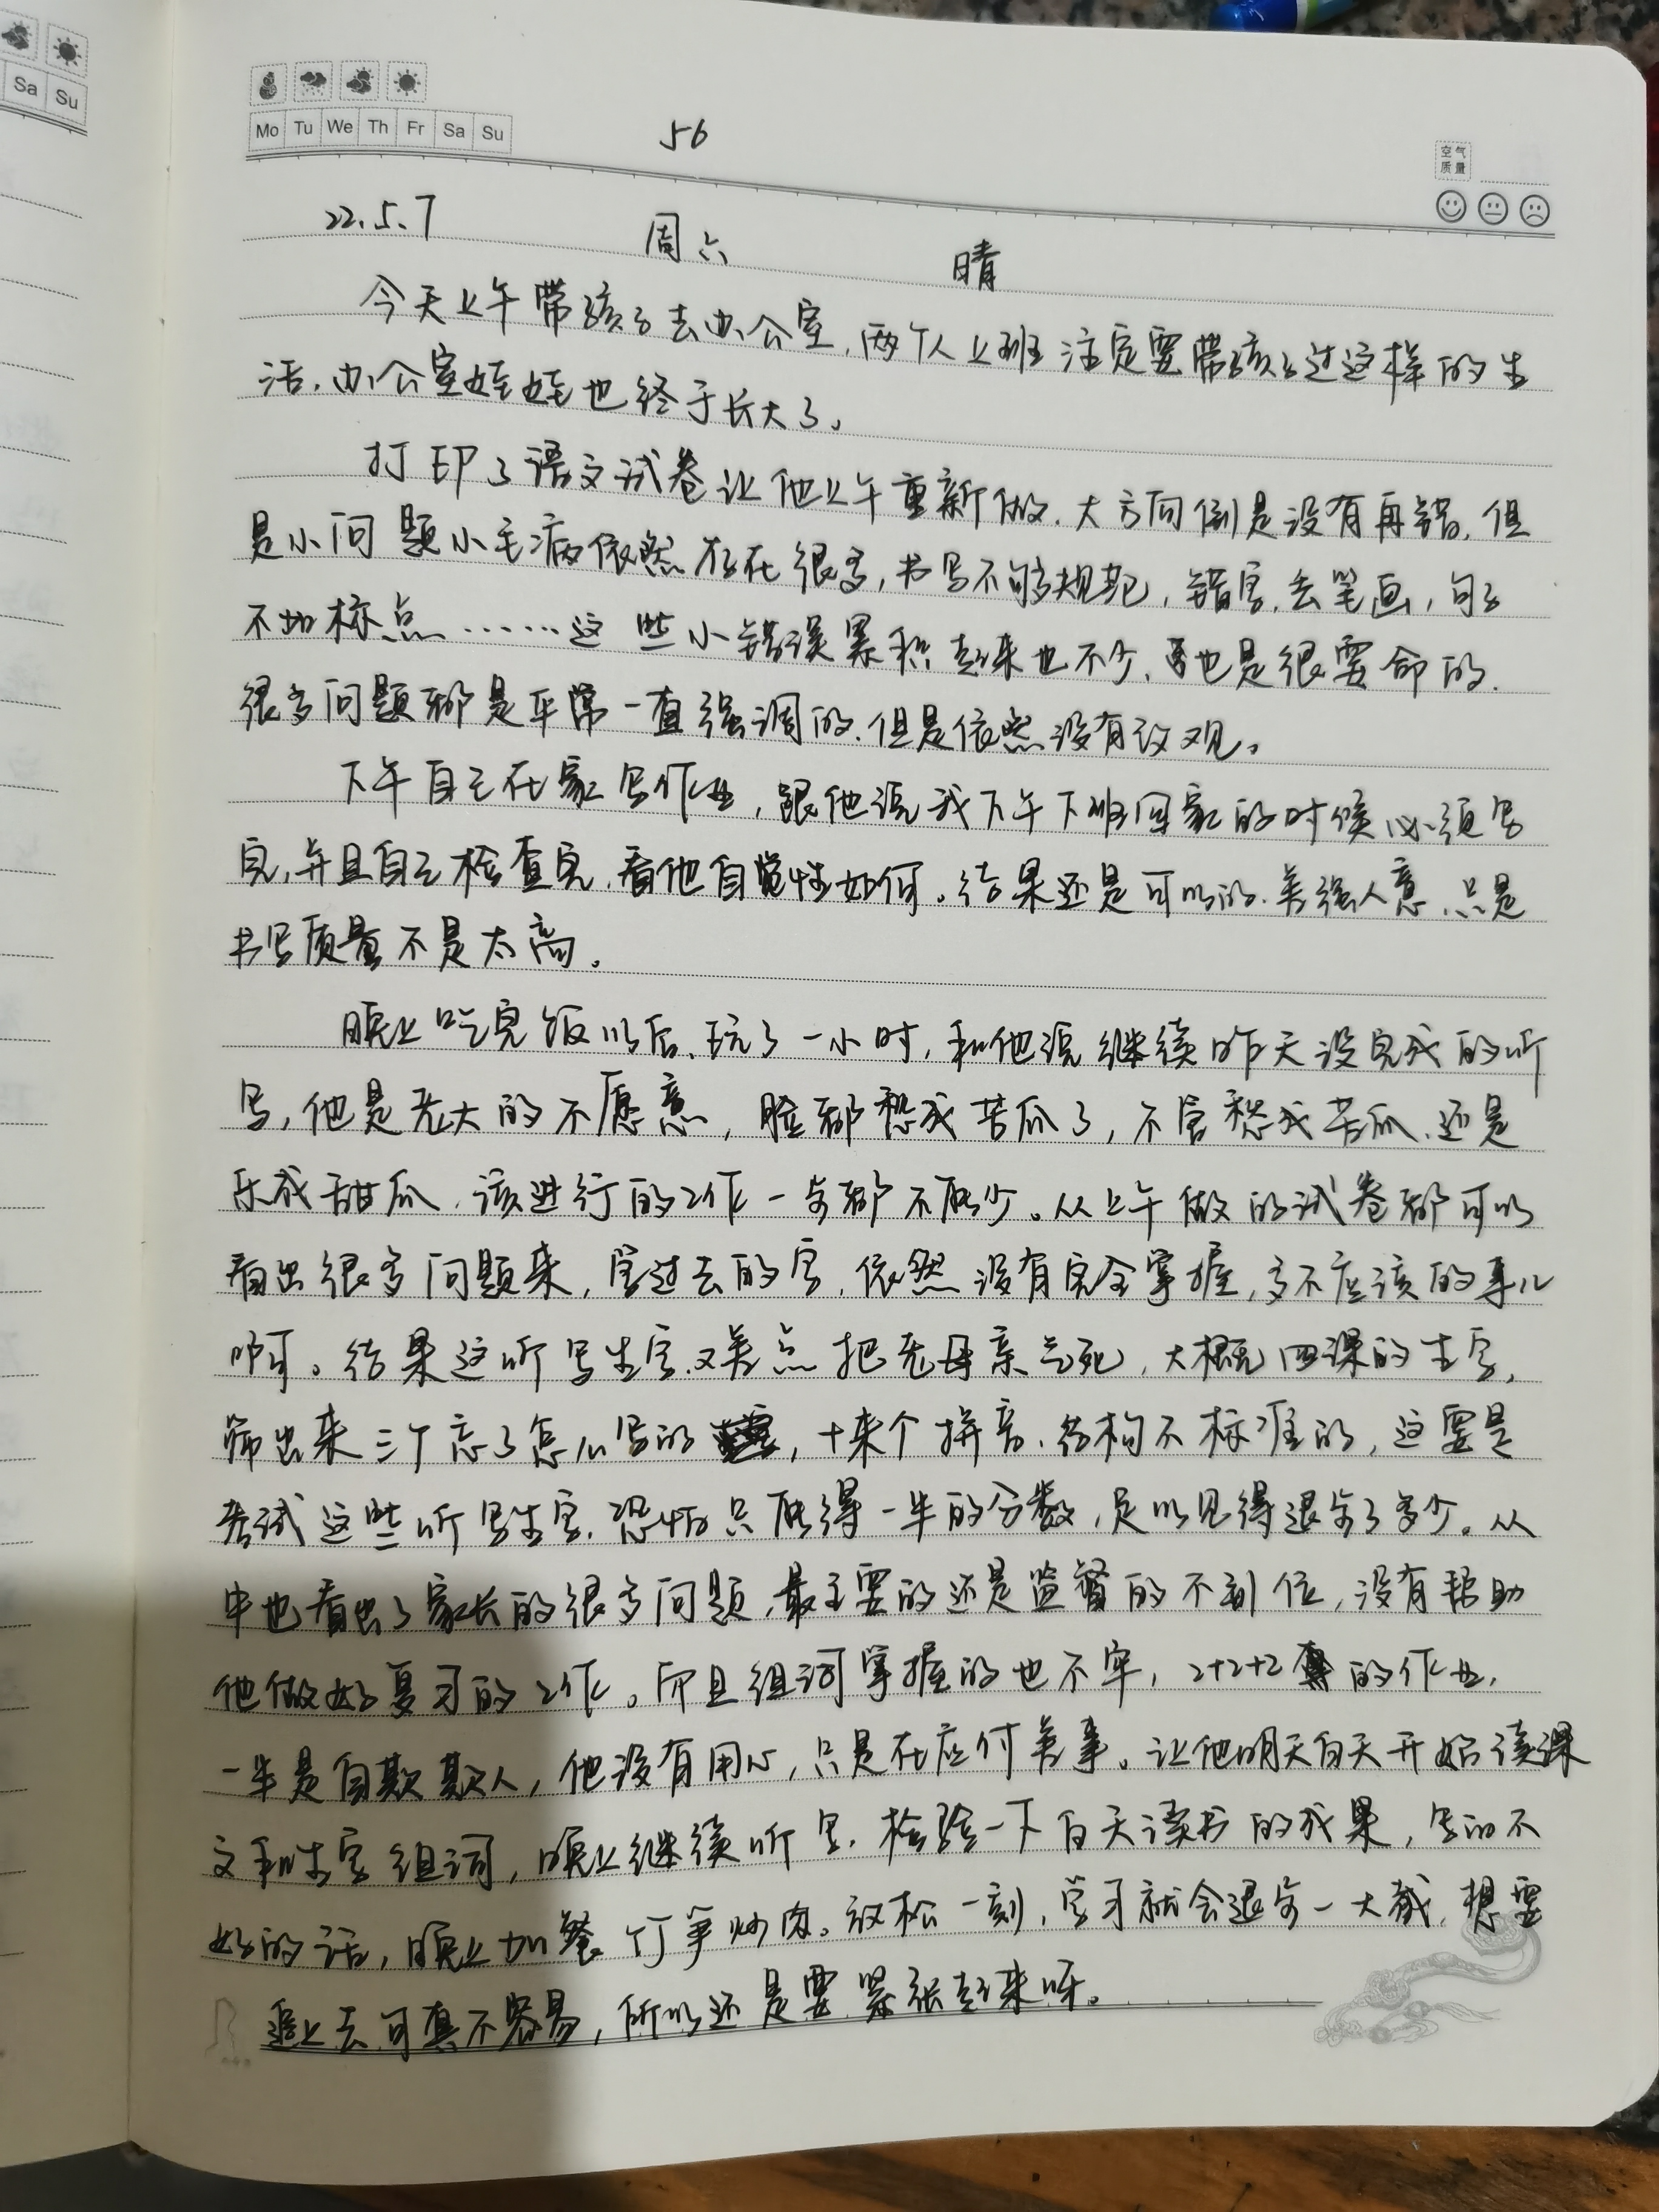 Sa Su
Mo Tu We Th Fr Sa Su
56
空气
质量
22.5.7 周六 晴
今天上午带孩子去办公室,两个人上班注定要带孩子过这样的生
活,办公室娃娃也终于长大了。
打印了语文试卷让他上午重新做,大方向倒是没有再错,但
是小问题小毛病依然存在很多,书写不够规范,错字,丢笔画,句子
不加标点……这些小错误累积起来也不少,也是很要命的.
很多问题都是平常一直强调的,但是依然没有改观。
下午自己在家写作业,跟他说我下午下班回家的时候必须写
完,并且自己检查完,看他自觉性如何。结果还是可以的,差强人意,只是
书写质量不是太高。
晚上吃完饭以后,玩了一小时,和他说继续昨天没完成的听
写,他是老大的不愿意,脸都愁成苦瓜了,不管愁成苦瓜,还是
乐成甜瓜,该进行的工作一点都不能少。从上午做的试卷都可以
看出很多问题来,学过去的字,依然没有完全掌握,多不应该的事儿
啊。结果这听写生字又差点把老母亲气死,大概四课的生字,
筛出来三个忘了怎么写的,十来个拼音、结构不标准的,这要是
考试这些听写生字,恐怕只能得一半的分数,足以见得退步了多少。从
中也看出了家长的很多问题,最主要的还是监督的不到位,没有帮助
他做好复习的工作。而且组词掌握的也不牢,2+2+2的作业,
一半是自欺欺人,他没有用心,只是在应付差事。让他明天白天开始读课
文和生字组词,晚上继续听写,检验一下白天读书的成果,写的不
好的话,晚上加餐竹笋炒肉。放松一刻,学习就会退步一大截,想要
追上去可真不容易,所以还是要紧张起来呀。